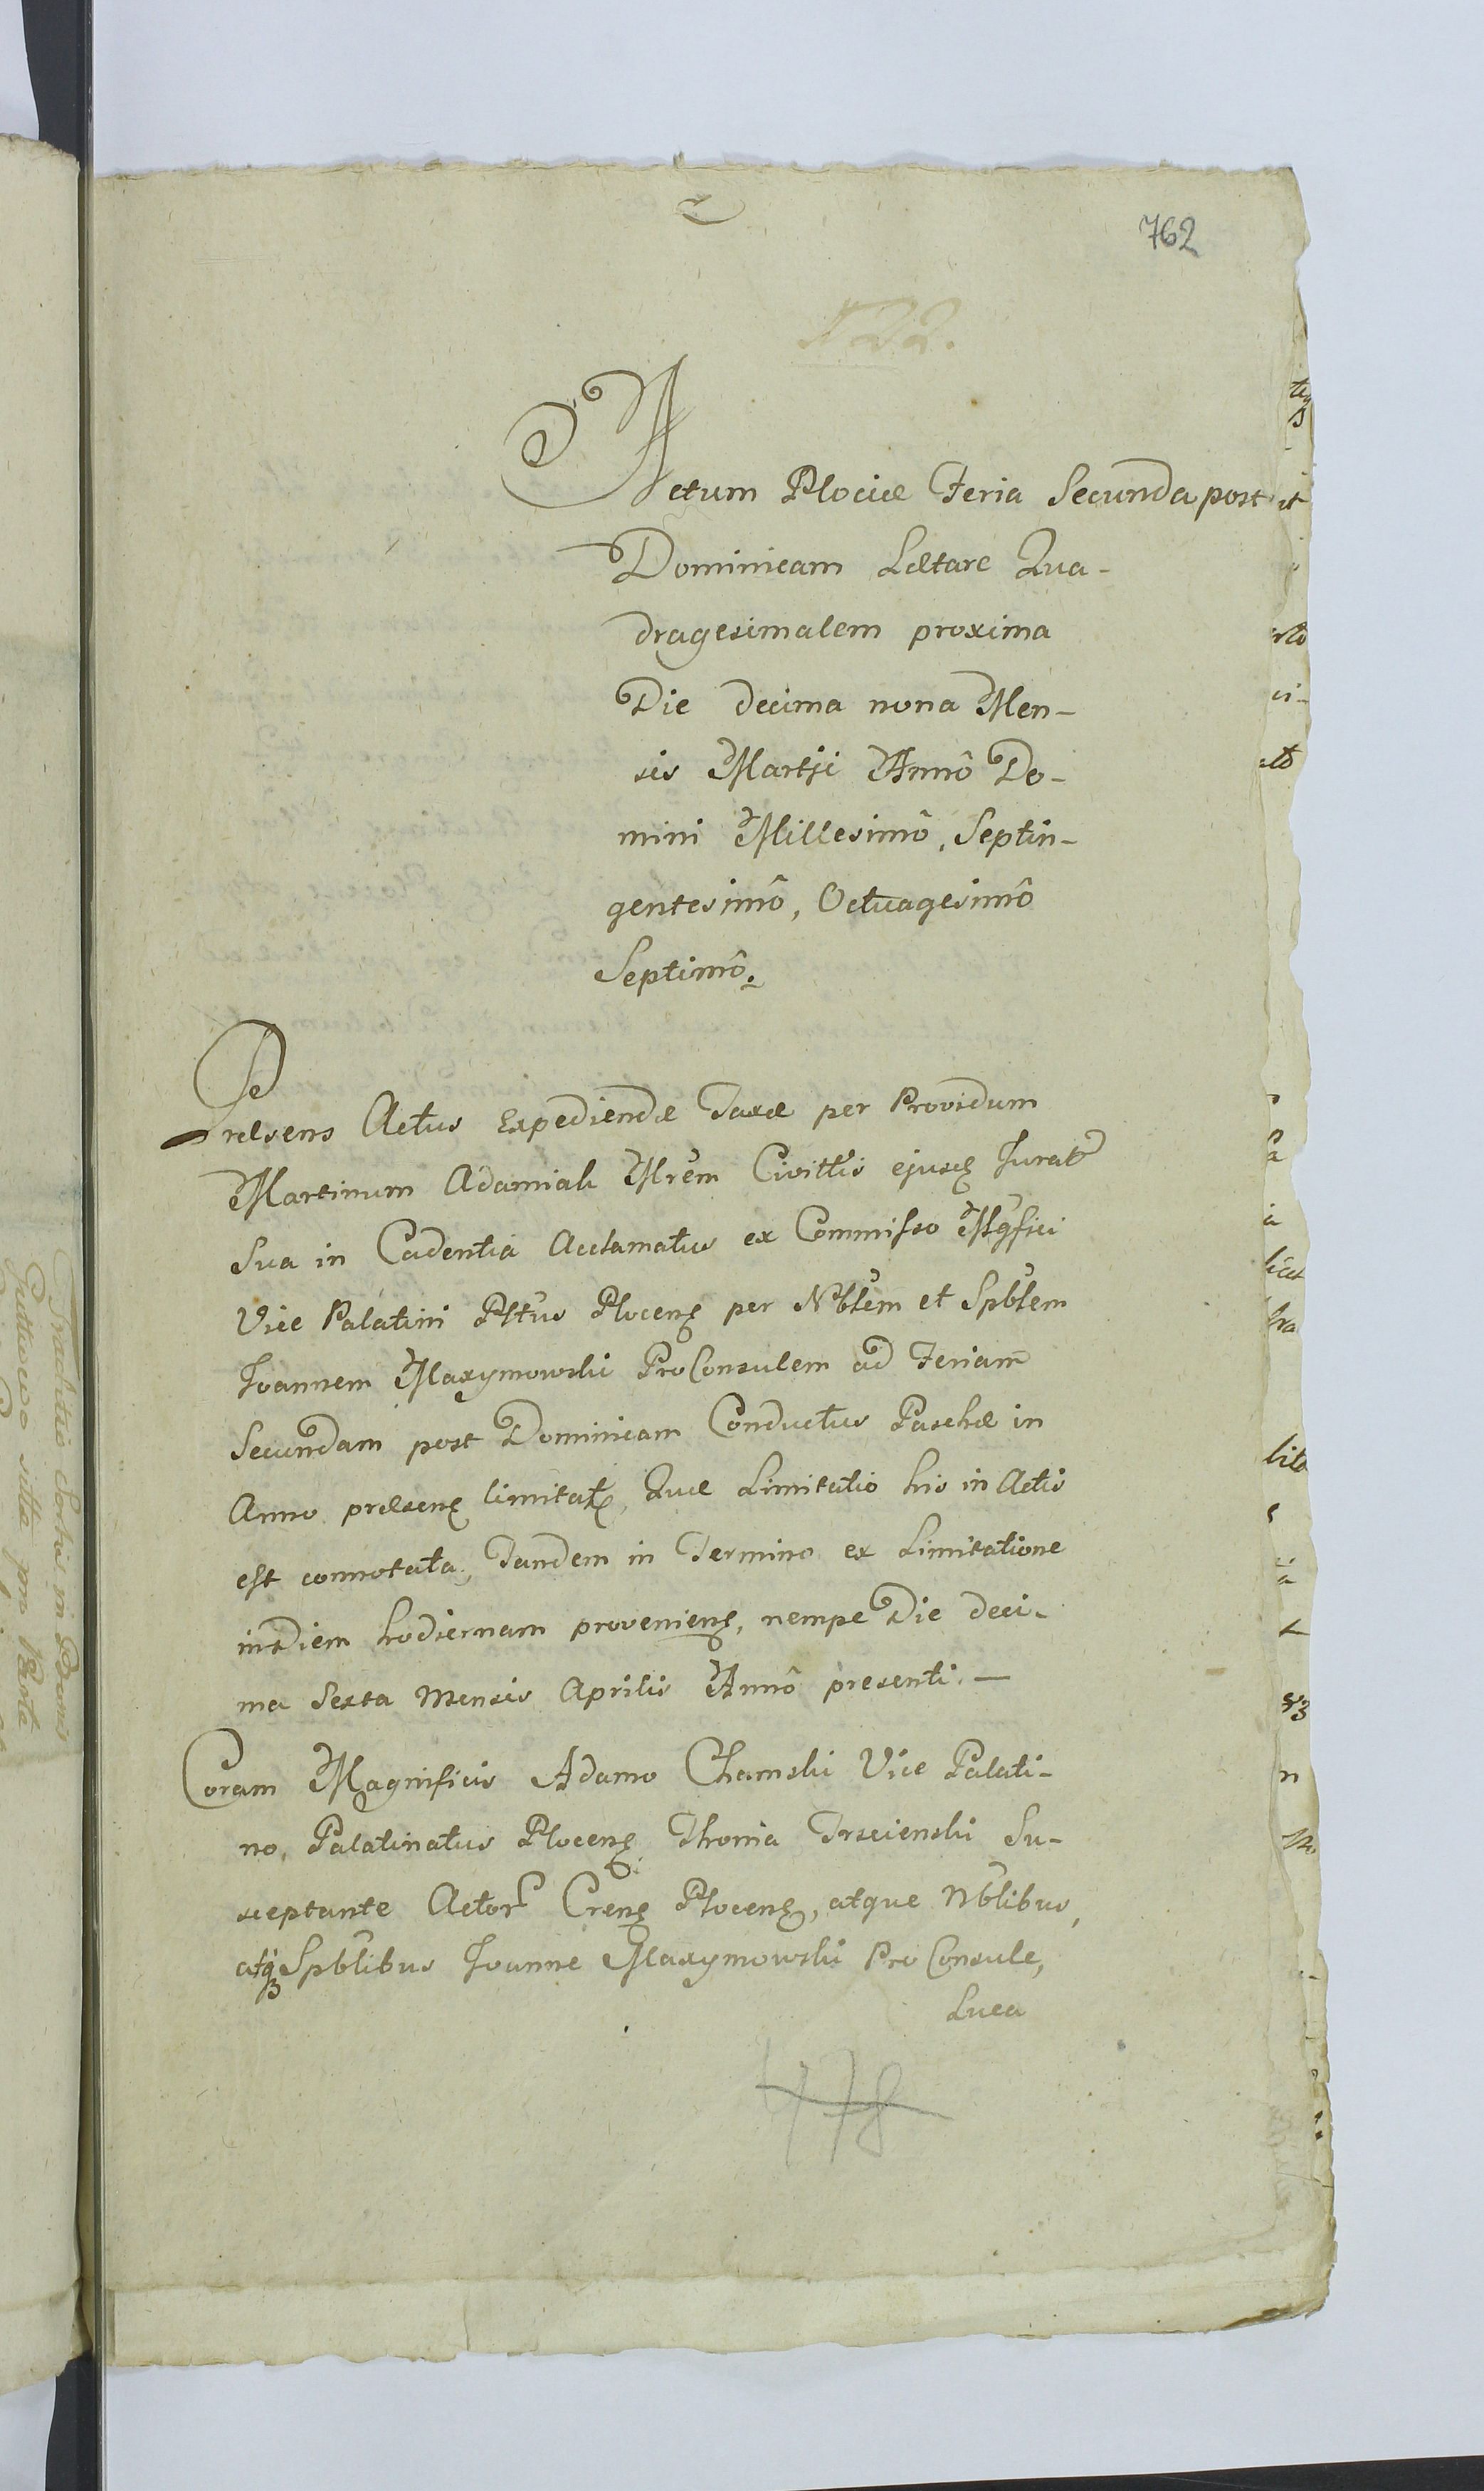 762
Actum Plociæ Feria Secunda post
Dominicam Lætare Qua-
dragesimalem proxima
Die decima nona Men-
sis Martii Annô Do-
mini Millesimô, Septin-
gentesimô, Octuagesimô
Septimô.
Præsens Actus Expediendæ Taxæ per Providum
Martinum Adamiak Mrem Civittis ejusq Jurat
Sua in Cadentia Acclamatus ex Commisso Mgfici
Vice Palatini Pltus Plocens per Nblem et Spblem
Joannem Maxymowski ProConsulem ad Feriam
Secundam post Dominicam Conductus Paschæ in
Anno præsens limitat, Quæ Limitatio his in Actis
est connotata, Tandem in Termino ex Limitatione
in Diem hodiernam proveniens, nempe Die deci-
ma Sexta Mensis Aprilis Annô presenti. —
Coram Magnificis Adamo Chamski Vice Palati-
no, Palatinatus Plocens Thoma Trscienski Su-
sceptante Actor Crens Plocens, atque Nblibus,
atq Spblibus Joanne Maxymowski Pro Consule,
Luca
778
Traditio Sortis in Bonis